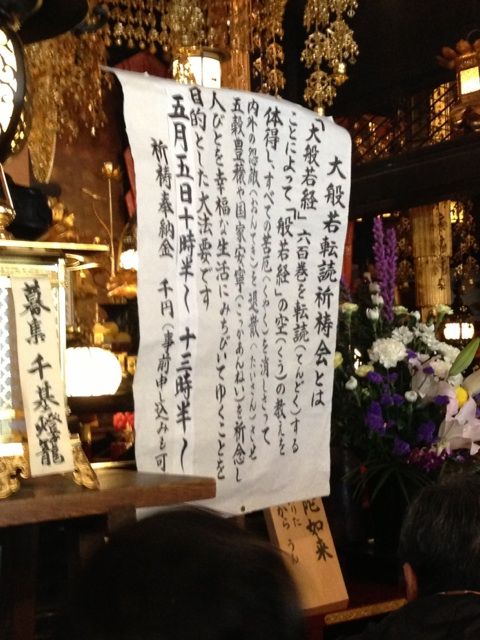 大般若転読祈祷会とは
「大般若経」六百巻を転読(てんどく)する
ことによって「般若経」の空(くう)の教えを
体得し、すべての苦厄(くやく)を消しさって
内外の怨敵(おんてき)を退散(たいさん)させ
五穀豊穣や国家安寧(こっかあんねい)を祈念し
人びとを幸福な生活にみちびいてゆくことを
目的とした大法要です
五月五日十時半～ 十三時半～
祈祷奉納金 千円(事前申し込みも可
募集 千基燈籠
陀如来